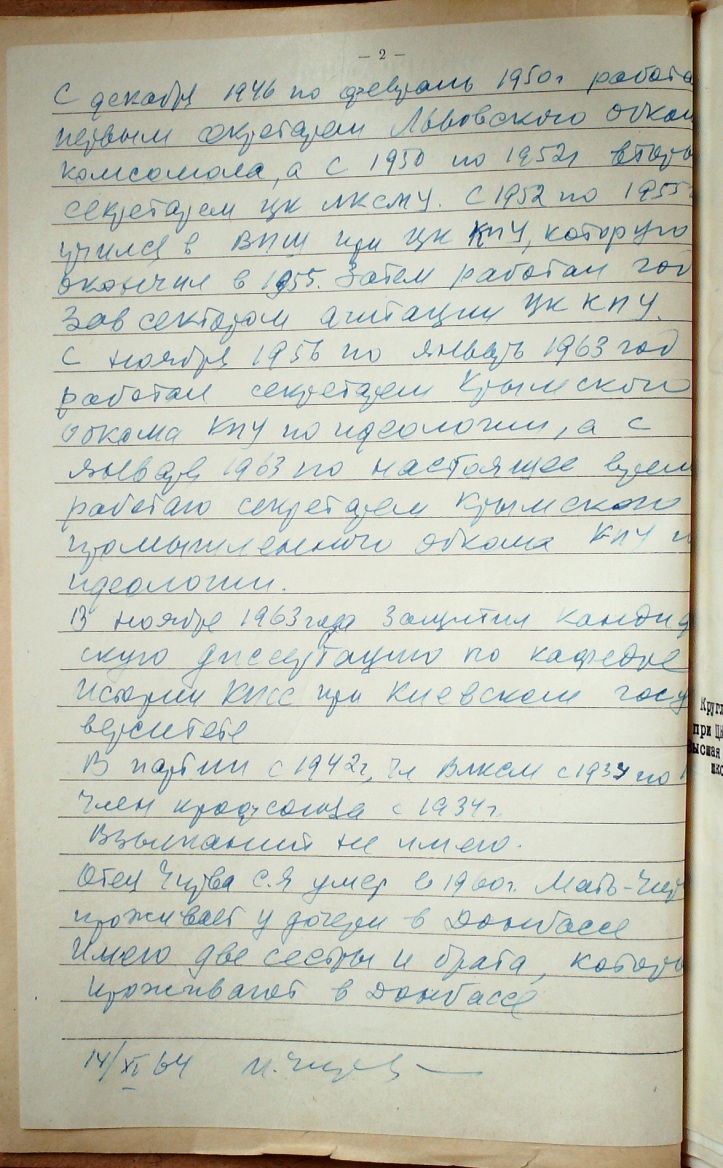 — 2 —
С декабря 1946 по февраль 1950г работа
первым секретарем Львовского обком
комсомола, а с 1950 по 1952г вторы
секретарем ЦК ЛКСМУ. С 1952 по 1955
учился в ВПШ при ЦК КПУ, которую
окончил в 1955. Затем работал год
Зав сектором агитации ЦК КПУ.
С ноября 1956 по январь 1963 год
работал секретарем Крымского
обкома КПУ по идеологии, а с
января 1963 по настоящее врем
работаю секретарем Крымского
промышленного обкома КПУ п
идеологии.
В ноябре 1963 года защитил кандид
скую диссертацию по кафедре
Истории КПСС при Киевском госу
верситете
В партии с 1942г, чл ВЛКСМ с 1937 по 1
член профсоюза с 1934г.
Взысканий не имею.
Отец Чирва С.Я умер в 1960г. Мать-Чир
проживает у дочери в Донбассе
Имею две сестры и брата, которы
проживают в Донбассе
14/XI 64 И. Чирва
Кругл
при ЦК
высшая
шко